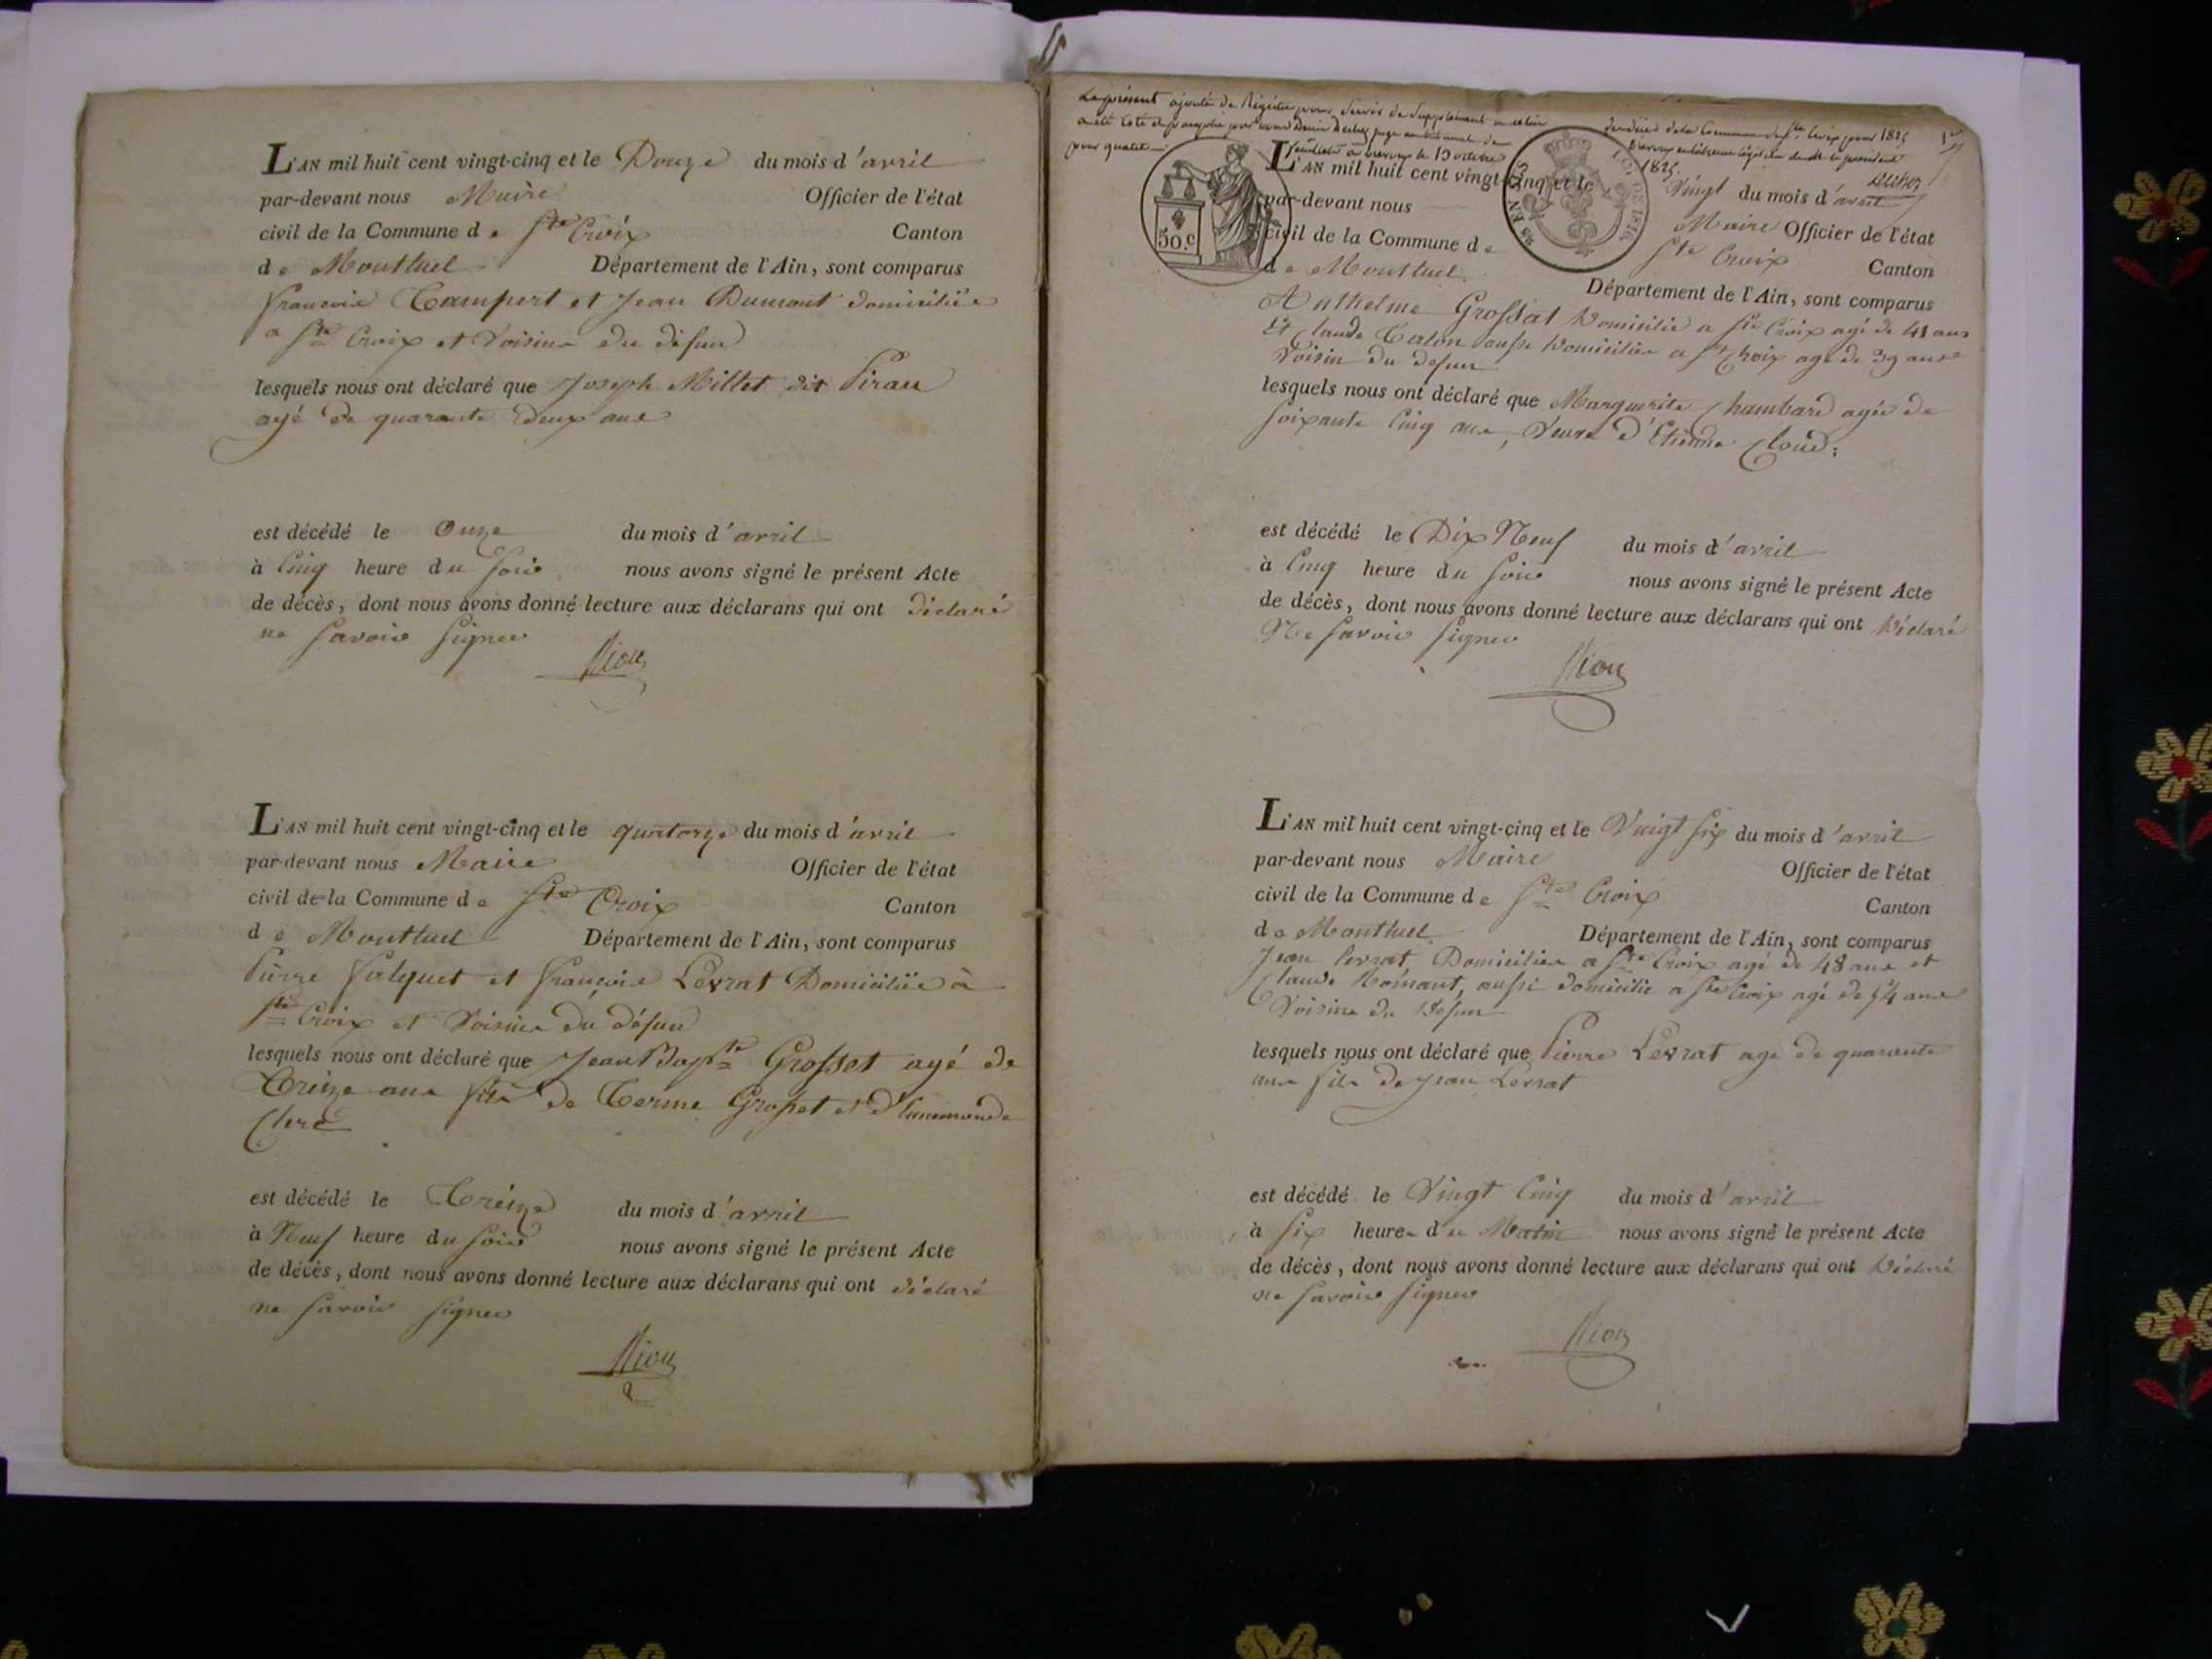 L'AN mil huit cent vingt-cinq et le Douze du mois d'avril
par-devant nous Maire Officier de l'état
civil de la Commune de Ste Croix Canton
de Montluel Département de l'Ain, sont comparus
françois Campert et Jean Dumont domiciliés
a Ste Croix et Voisins du défun
lesquels nous ont déclaré que Joseph Millet dit Piran
agé de quarante deux ans
est décédé le Onze du mois d'avril
à Cinq heure du Soir nous avons signé le présent Acte
de décès, dont nous avons donné lecture aux déclarans qui ont déclaré
ne Savoir Signer
L'AN mil huit cent vingt-cinq et le quatorze du mois d'avril
par-devant nous Maire Officier de l'état
civil de la Commune de Ste Croix Canton
de Montluel Département de l'Ain, sont comparus
Pierre Falquet et françois Levrat Domiciliés à
Ste Croix et Voisins du défun
lesquels nous ont déclaré que Jean Bapte Grosset agé de
Treize ans fils de Terme Grosset et d'
Clerc
est décédé le Treize du mois d'avril
à Neuf heure du Soir nous avons signé le présent Acte
de décès, dont nous avons donné lecture aux déclarans qui ont déclaré
ne Savoir Signer
Le présent ajouté de Régistre pour Servir de Supplément
a été coté et paraphé par nous
pour quatre feuillets a trevoux le 13 octobre 1825.
de la Commune de Ste Croix pour 1825
1er
50.c
EN SUS
LOI DE 1816
L'AN mil huit cent vingt-cinq et le Vingt du mois d'avril
par-devant nous Maire Officier de l'état
civil de la Commune de Ste Croix Canton
de Montluel Département de l'Ain, sont comparus
Anthelme Grossat Domicilié a Ste Croix agé de 41 ans
Et Claude Calon aussi Domicilié a Ste Croix agé de 39 ans
Voisin du défun
lesquels nous ont déclaré que Marguerite Chambard agée de
Soixante Cinq ans, Veuve d'Etienne Cloud;
est décédé le Dix Neuf du mois d'avril
à Cinq heure du Soir nous avons signé le présent Acte
de décès, dont nous avons donné lecture aux déclarans qui ont Déclaré
Ne Savoir Signer
L'AN mil huit cent vingt-cinq et le Vingt Six du mois d'avril
par-devant nous Maire Officier de l'état
civil de la Commune de Ste Croix Canton
de Montluel Département de l'Ain, sont comparus
Jean Levrat Domicilier a Ste Croix agé de 48 ans et
Claude aussi domicilié a Ste Croix agé de 54 ans
Voisins du Défun
lesquels nous ont déclaré que Pierre Levrat agé de quarante
ans fils de Jean Levrat
est décédé le Vingt Cinq du mois d'avril
à Six heures du Matin nous avons signé le présent Acte
de décès, dont nous avons donné lecture aux déclarans qui ont Déclaré
ne Savoir Signer